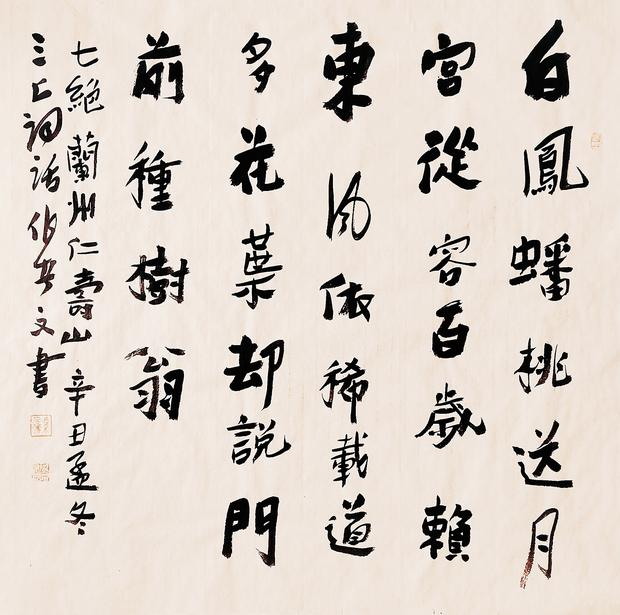 白鳳蟠桃送月
宮從容百歲賴
東風依稀載道
多花葉却說門
前種樹翁
七絕蘭州仁壽山辛丑孟冬
三上詞話作共文書